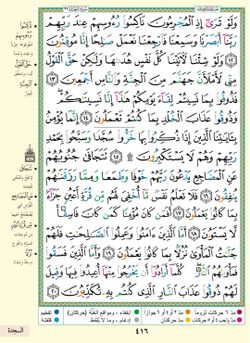 وَلَوْ تَرَىٰٓ إِذِ ٱلْمُجْرِمُونَ نَاكِسُوا۟ رُءُوسِهِمْ عِندَ رَبِّهِمْ
رَبَّنَآ أَبْصَرْنَا وَسَمِعْنَا فَٱرْجِعْنَا نَعْمَلْ صَٰلِحًا إِنَّا مُوقِنُونَ
١٢ وَلَوْ شِئْنَا لَءَاتَيْنَا كُلَّ نَفْسٍ هُدَىٰهَا وَلَٰكِنْ حَقَّ ٱلْقَوْلُ
مِنِّى لَأَمْلَأَنَّ جَهَنَّمَ مِنَ ٱلْجِنَّةِ وَٱلنَّاسِ أَجْمَعِينَ ١٣
فَذُوقُوا۟ بِمَا نَسِيتُمْ لِقَآءَ يَوْمِكُمْ هَٰذَآ إِنَّا نَسِينَٰكُمْ
وَذُوقُوا۟ عَذَابَ ٱلْخُلْدِ بِمَا كُنتُمْ تَعْمَلُونَ ١٤ إِنَّمَا يُؤْمِنُ
بِـَٔايَٰتِنَا ٱلَّذِينَ إِذَا ذُكِّرُوا۟ بِهَا خَرُّوا۟ سُجَّدًا وَسَبَّحُوا۟ بِحَمْدِ
رَبِّهِمْ وَهُمْ لَا يَسْتَكْبِرُونَ ١٥ تَتَجَافَىٰ جُنُوبُهُمْ
عَنِ ٱلْمَضَاجِعِ يَدْعُونَ رَبَّهُمْ خَوْفًا وَطَمَعًا وَمِمَّا رَزَقْنَٰهُمْ
يُنفِقُونَ ١٦ فَلَا تَعْلَمُ نَفْسٌ مَّآ أُخْفِىَ لَهُم مِّن قُرَّةِ أَعْيُنٍ جَزَآءًۢ
بِمَا كَانُوا۟ يَعْمَلُونَ ١٧ أَفَمَن كَانَ مُؤْمِنًا كَمَن كَانَ فَاسِقًا لَّا
يَسْتَوُۥنَ ١٨ أَمَّا ٱلَّذِينَ ءَامَنُوا۟ وَعَمِلُوا۟ ٱلصَّٰلِحَٰتِ فَلَهُمْ
جَنَّٰتُ ٱلْمَأْوَىٰ نُزُلًۢا بِمَا كَانُوا۟ يَعْمَلُونَ ١٩ وَأَمَّا ٱلَّذِينَ فَسَقُوا۟
فَمَأْوَىٰهُمُ ٱلنَّارُ كُلَّمَآ أَرَادُوٓا۟ أَن يَخْرُجُوا۟ مِنْهَآ أُعِيدُوا۟ فِيهَا وَقِيلَ
لَهُمْ ذُوقُوا۟ عَذَابَ ٱلنَّارِ ٱلَّذِى كُنتُم بِهِۦ تُكَذِّبُونَ ٢٠
٤١٦
السجدة